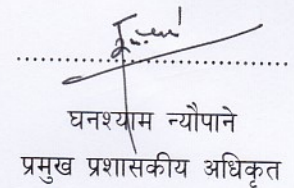 घनश्याम न्यौपाने
प्रमुख प्रशासकीय अधिकृत